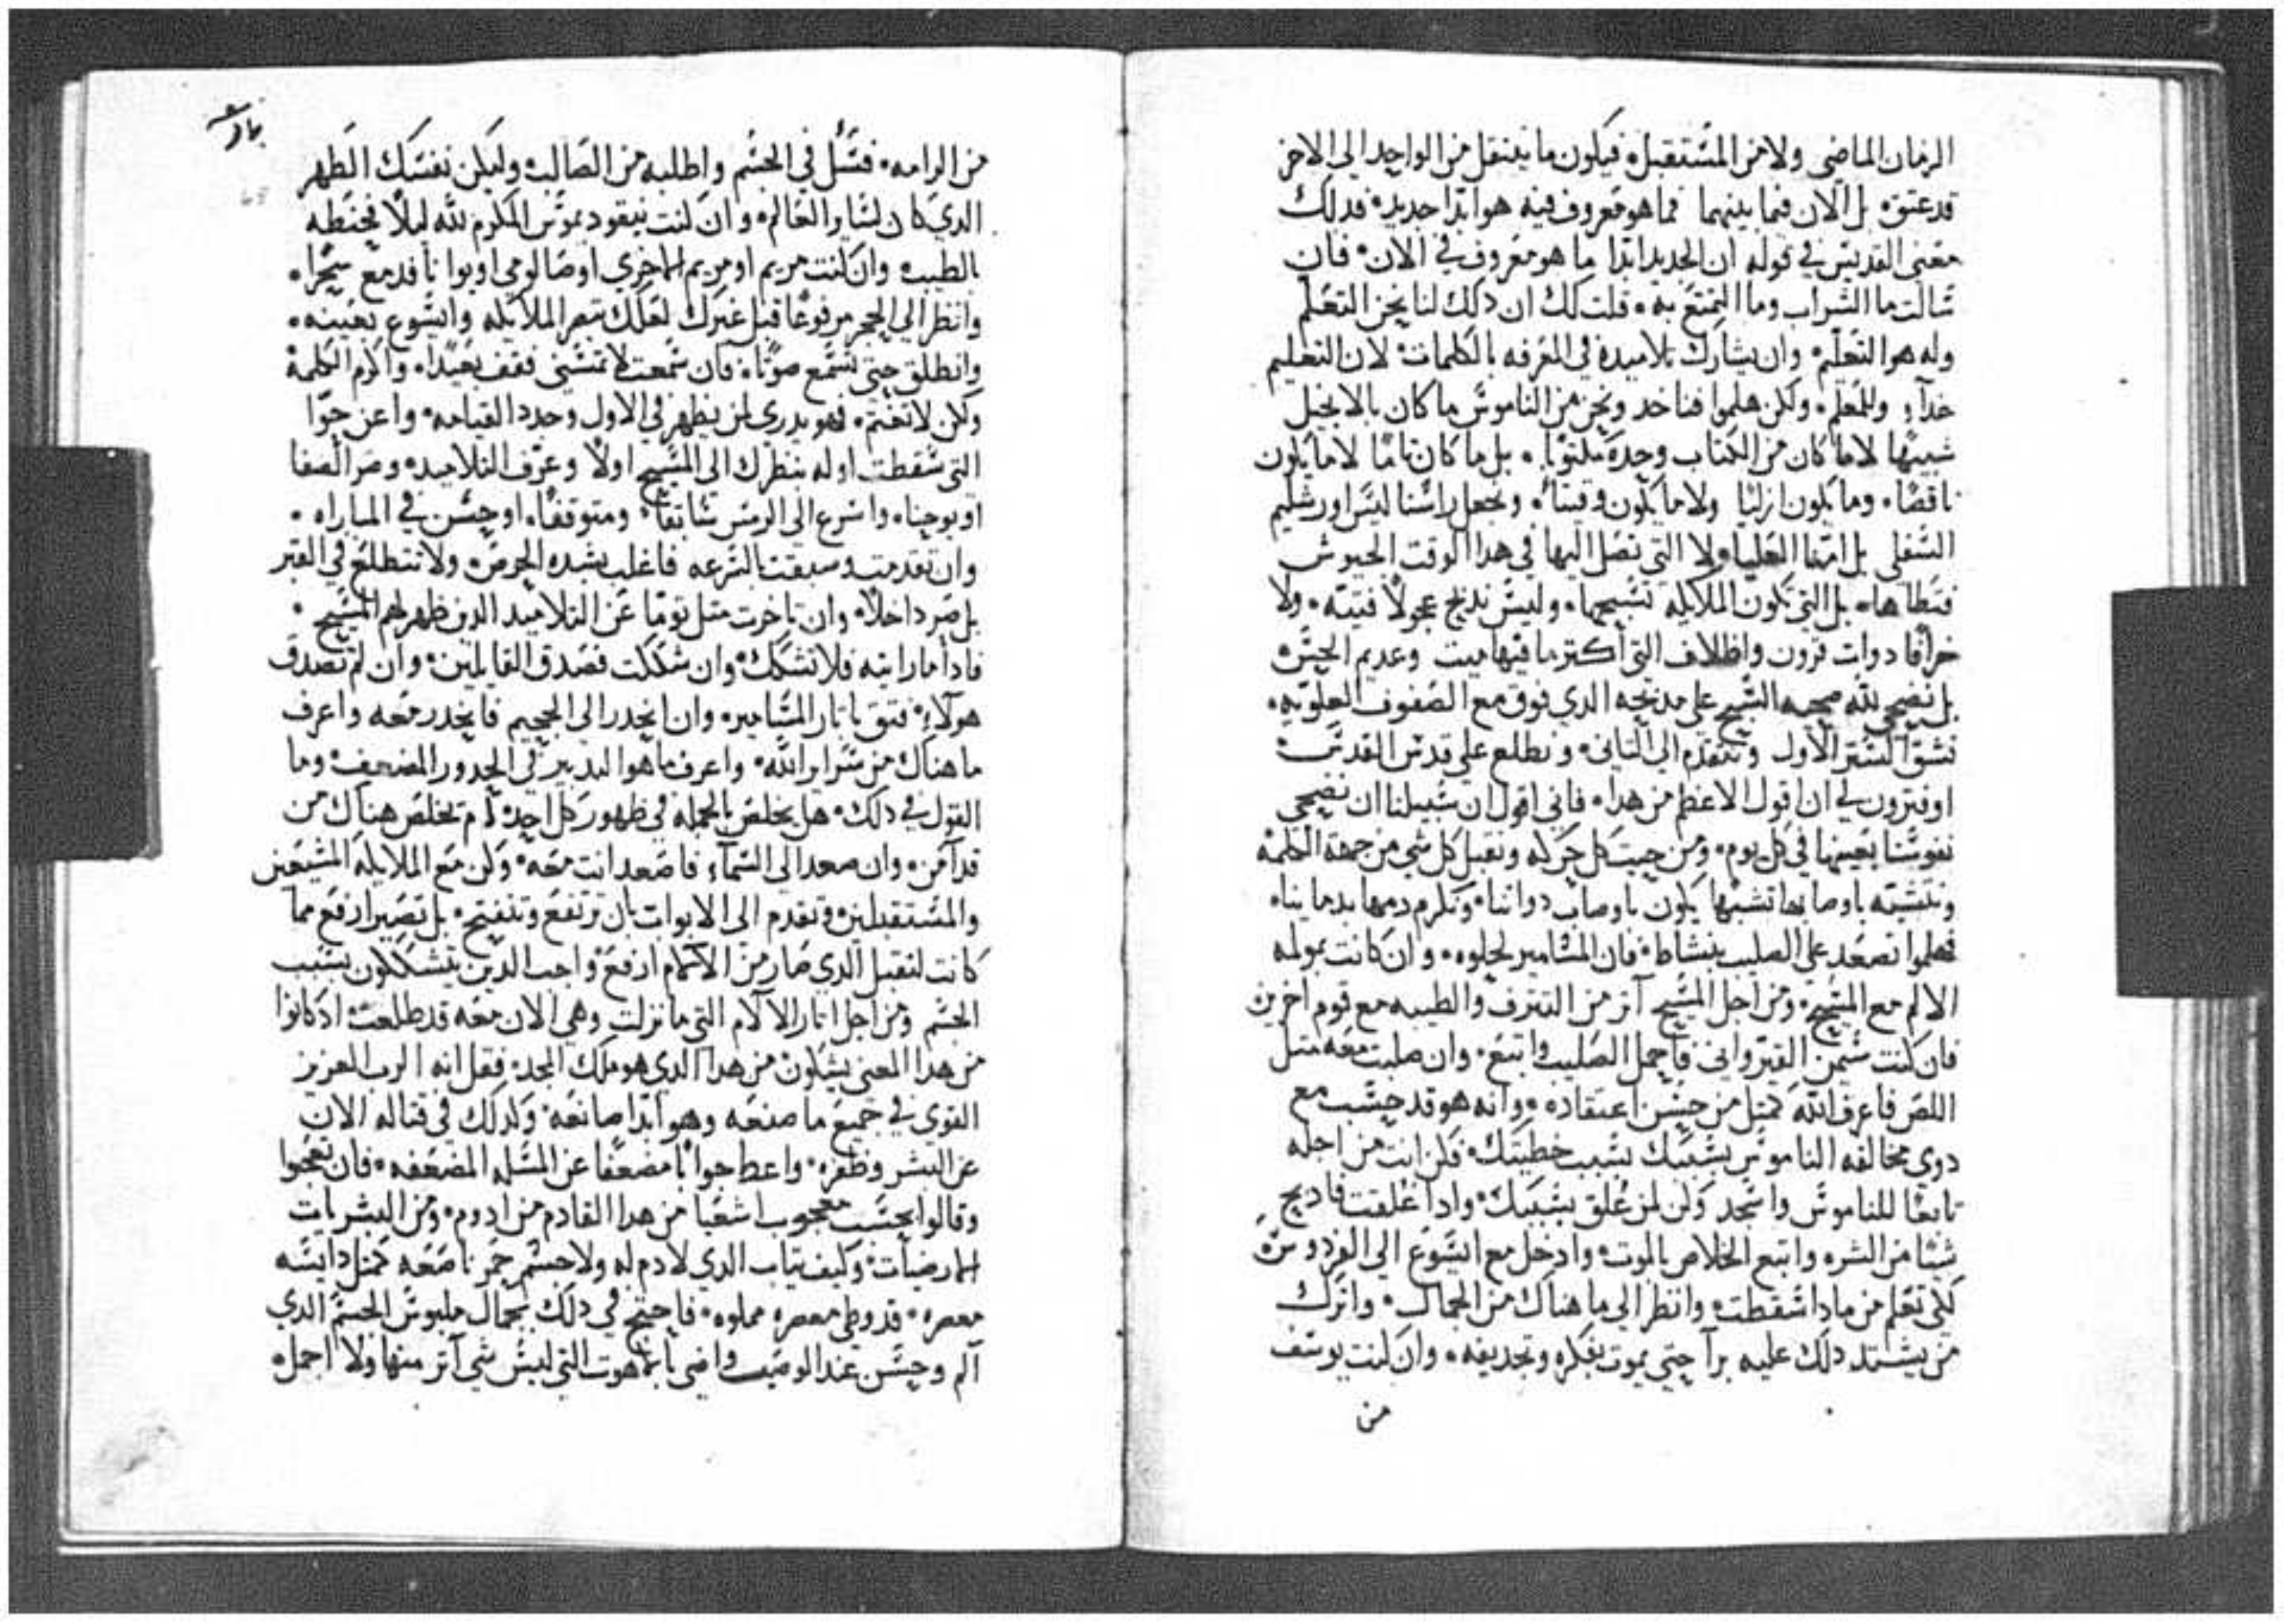 الزمان الماضي ولا من المستقبل. فيكون ما ينتقل من الواحد الي الاخر
قد عتق. بل الان فيما بينهما فما هو معروف فيه هو ابدا جديد. فدلك
معني القديس في قوله ان الجديد ابدا ما هو معروف في الان. فان
سالت ما الشراب وما التمتع به. قلت لك ان دلك لنا نحن التعلم
وله هو التعليم. وان يشارك تلاميده في المعرفه بالكلمات. لان التعليم
غدآء وللمعلم. ولكن هلموا فناخد ونحن من الناموس ما كان بالانجيل
شبيهًا لا ما كان من الكتاب وحده مكتوبًا. بل ما كان تامًا لا ما يكون
ناقصًا. وما يكون ازليًا ولا ما يكون وقتيًا. ونجعل راسنا ليس اورشليم
السفلي بل امنا العليا. ولا التي تصل اليها في هدا الوقت الجيوش
فتطاها. بل التي تكون الملايكه تسبحها. وليس ندبح عجولاً فتيه. ولا
خرافًا دوات قرون واظلاف التي اكتر ما فيها ميت وعديم الحس.
بل نضحي لله ضحيه التسبيح علي مدبحه الدي فوق مع الصفوف العلويه.
نشق الستر الاول ونتقدم الي التاني. ونطلع علي قدس القدس.
او فترون لي ان اقول الاعظم من هدا. فاني اقول ان سبيلنا ان نضحي
نفوسنا بعينها في كل يوم. ومن حيت كل حركه ونقبل كل شي من جهة الكلمة
ونتشبه باوصابها تشبهًا يكون باوصاب دواتنا. ونكرم دمها بدماينا.
فهلموا نصعد علي الصليب بنشاط. فان المسامير لحلوه. وان كانت بمولمه
الالم مع المسيح. ومن اجل المسيح آتر من التترف والطيبه مع قوم اخرين
فان كنت سمعن القيرواني فاحمل الصليب واتبع. وان صلبت معه متل
اللص فاعرف الله كمتل من حسن اعتقاده. وانه هو قد حسب مع
دوي مخالفه الناموس بسببك بسبب خطيتك. فكن انت من اجله
تابعًا للناموس واسجد ولو لمن عُلق بسببك. وادا عُلقت فاربح
شيًا من الشره واتبع الخلاص بالموت. وادخل مع ايسوع الي الفردوس.
لكي تعلم من مادا سقطت. وانظر الي ما هناك من الجمال. واترك
من يشتد دلك عليه برآ حتي يموت بفكره وتجديفه. وان كنت يوسف
من
من الرامه. فسَل في الجسم واطلبه من الصالب. وليكن نفسك الطهر
الدي كان لساير العالم. وان كنت نيقوديموس المكرم لله ليلاً فحنطه
بالطيب. وان كنت مريم او مريم الاخري او صالومي او يوانا فدمع سحرًا.
وانظر الي الحجر مرفوعًا قبل غيرك لعلك تبصر الملايكه وايسوع بعينه.
وانطلق حتي تسمع صوتًا. فان سمعت لا تمسني فقف بعيدًا. واكرم الكلمة
ولكن لا تغتم. فهو يدري لمن يظهر في الاول وجدد القيامه. واعن حوّا
التي سقطت اوله بنظرك الي المسيح اولاً وعرّف التلاميد. وصر الصفا
او يوحنا. واسرع الي الرمس سابقًا. ومتوقفًا. او حسن في المباراه.
وان تقدمت وسبقت بالسرعه فاغلب بشده الحرص. ولا تتطلع في القبر
بل صر داخلاً. وان تاخرت متل توما عن التلاميد الدين ظهر لهم المسيح.
فادا ما رايته فلا تشكك. وان شككت فصدق القايلين. وان لم تصدق
هولآء. فتق باتار المسامير. وان انحدر الي الجحيم فانحدر معه واعرف
ما هناك من سراير الله. واعرف ما هو التدبير في الحدور المضعف. وما
القول في دلك. هل يخلص بالجمله في ظهور كل احد. ام تخلص هناك من
قد آمن. وان صعد الي السمآء فاصعد انت معه. وكن مع الملايكه المشيعين
والمستقبلين. وتقدم الي الابواب بان ترتفع وتنفتح. بل تصير ارفع مما
كانت لتقبل الدي صار من الآلام ارفع واجب الدين يتشككون بسبب
الجسم ومن اجل اتار الالام التي ما نزلت وهي الان معه قد طلعت. اد كانوا
من هدا المعني يشكون من هدا الدي هو ملك المجد. فقل انه الرب العزيز
القوي في جميع ما صنعه وهو ابدًا صانعه. وكدلك في قتاله الان
عن البشر وظفره. واعط جوابًا مضعفًا عن المسله المضعفه. فان تعجبوا
وقالوا بحسب تعجب اشعيا من هدا القادم من ادوم. ومن البشريات
الارضيات. وكيف تياب الدي لا دم له ولا جسم حمر ناصعه كمتل دايسه
معصره. قد وطي معصره مملوه. فاحتج في دلك بجمال ملبوس الجسم الدي
آلم وحسن عند الوصب واضي باللاهوت التي ليس شي آتر منها ولا اجمل.